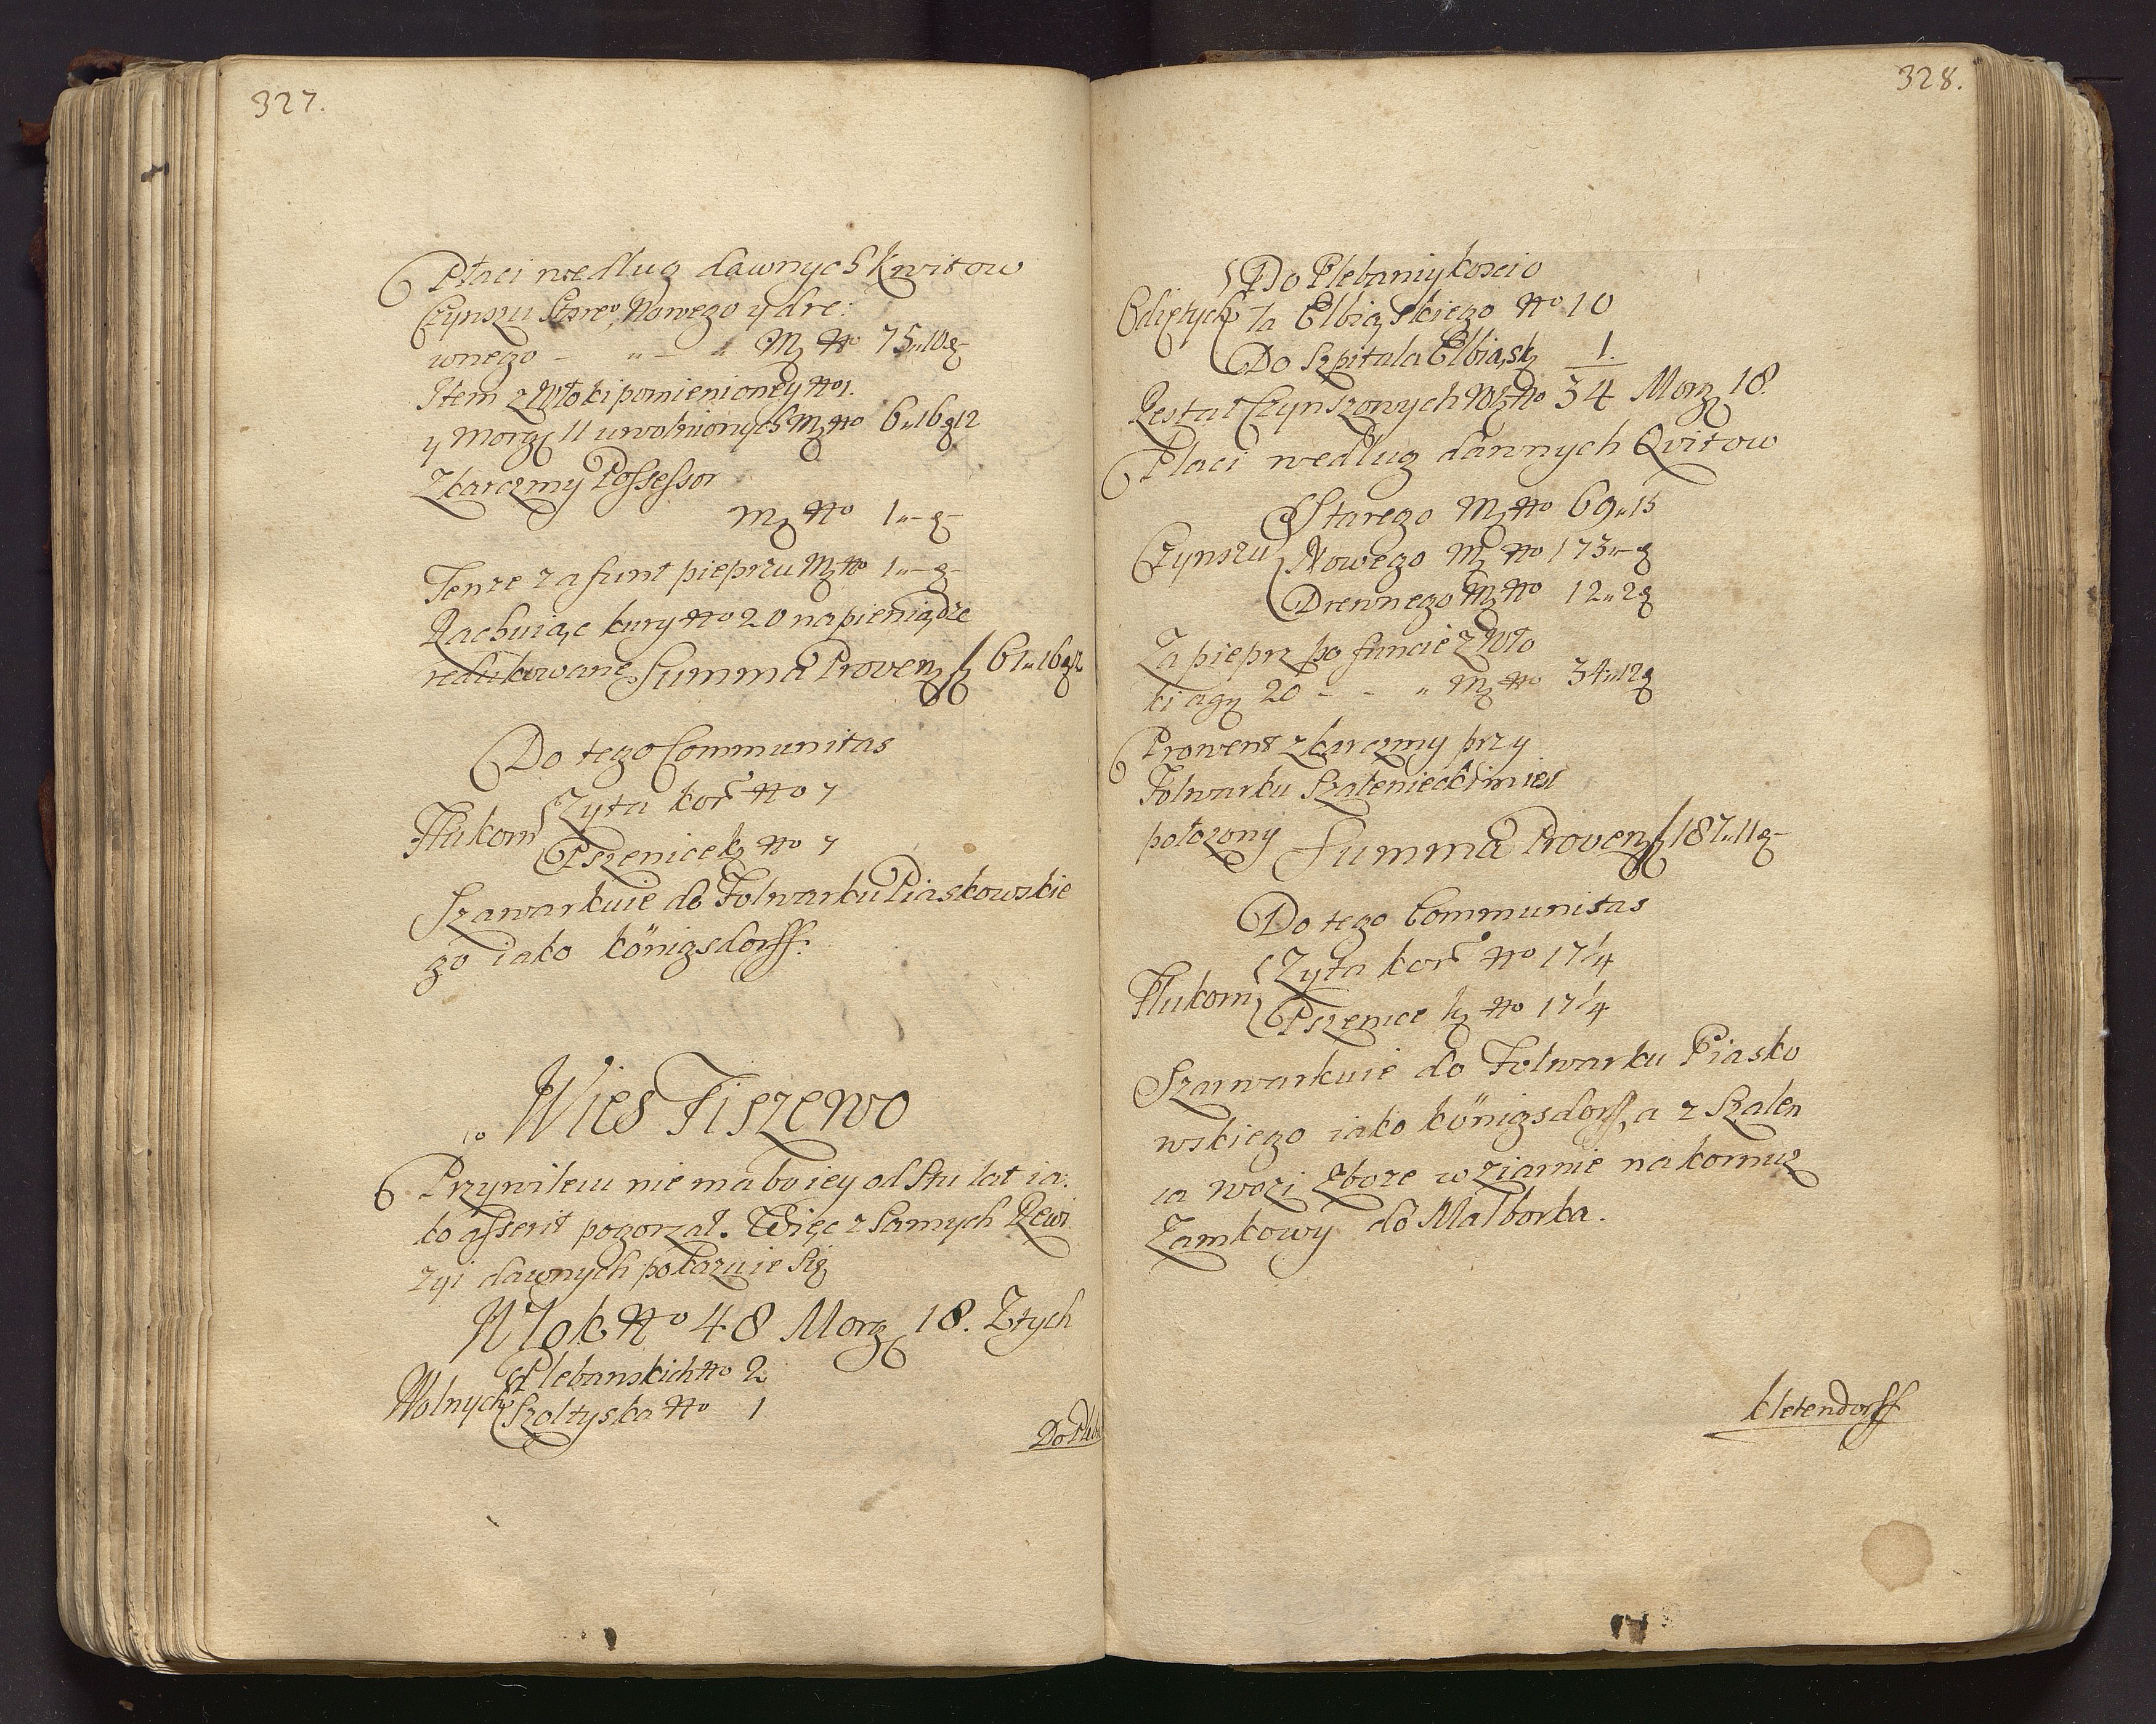 327.
Płaci według dawnych kwitow
Czynszu Stareº, Nowego y dre:
wnego - „ - „ Mz Nº 75„10g-
Item z Włoki pomienioney Nº1.
y Morgz 11 uwolnionych Mz Nº 6„16g12
Zkarczmy Possessor
Mz Nº 1„-g-
Tenze za funt pieprzu Mz Nº 1„-g-
Rachuiąc kury Nº 20 na pieniądze
redukowane. Summa Provenz f 61„16g12
Do tego Communitas
Tłukom Zyta kor Nº 7
Pszenice kz Nº 7
Szarwarkuie do Folwarku Piaskowskie
go iako Königsdorff.
Wies Fiszewo
Przywileiu nie ma bo iey od Stu lat ia:
ko asserit pogorzał. Więc z Samych Rewi
zyi dawnych pokazuie Się
Włok Nº 48 Morg 18. Ztych
Wolnych Plebanskich Nº 2
Szoltyska Nº 1
Do Pleb
328.
Do Plebaniy koscio
Odiętych ła Elbiąskiego Nº 10
Do Szpitala Elbiąsk 1.
Restat Czynszowych Wł Nº 34 Morg 18.
Płaci według dawnych Qvitow
Starego Mz Nº 69„15
Czynszu Nowego Mz Nº 173„-g
Drewnego Mz Nº 12„2g
Za pieprz po funcie z Wło
ki agz 20 - - „ Mz Nº 34„12g
Prowent z karczmy przy
Folwarku Szalenieckim iest
położony Summa Provenz f 187„11g-
Do tego Communitas
Tłukom Zyta kor Nº 17¼
Pszenice kz Nº 17¼
Szarwarkuie do Folwarku Piasko
wskiego iako Königsdorff, a z Szalen
ca wozi Zboze w ziarnie na komuz
Zamkowy do Malborka.
Kletendorff